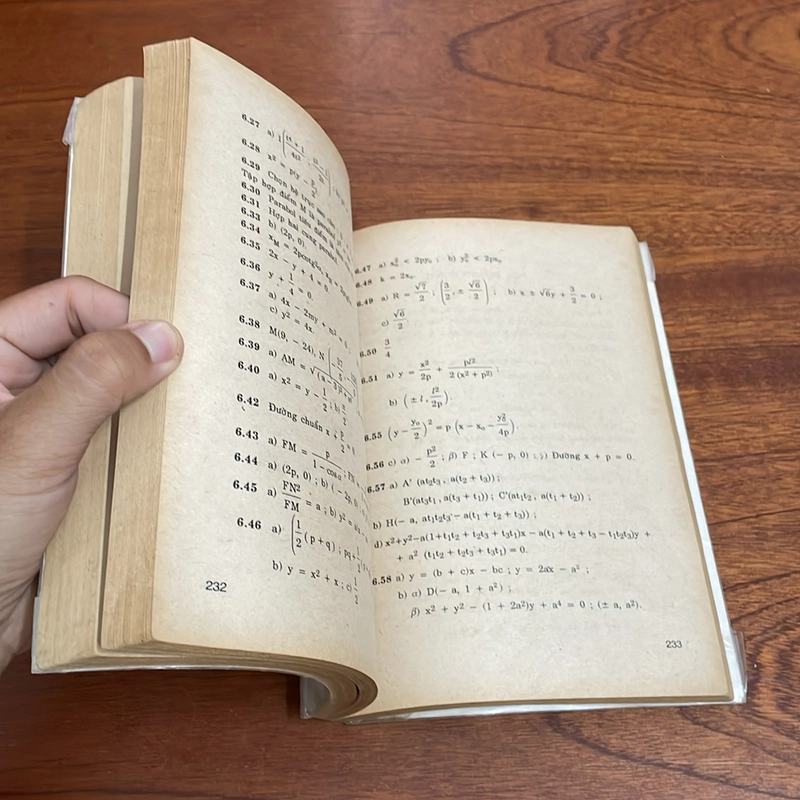 6.27 a) I
6.28 x² = p(y −
6.29 Chọn hệ trục sao cho
Tập hợp điểm M là parabol y² =
6.30 Parabol tiêu điểm là
6.31 Hợp hai cung parabol
6.33 b) (2p, 0).
6.34 x_M = 2pcotg
6.35 2x − y + 4 = 0
6.36 y + 1/4 = 0.
6.37 a) 4x − 2my + m² = 0
c) y² = 4x.
6.38 M(9, − 24), N
6.39 a) AM =
6.40 a) x² = y − 1/2 ; b)
6.42 Đường chuẩn x + p/2 = 0
6.43 a) FM = p/(1 − cos
6.44 a) (2p, 0) ; b) (− 2p, 0)
6.45 a) FN²/FM = a ; b) y² =
6.46 a) (1/2 (p + q) ; pq + 1/2
b) y = x² + x ; c) 1/2
232
6.47 a) x₀² < 2py₀ ; b) y₀² < 2px₀
6.48 k = 2x₀.
6.49 a) R = √7/2 , (3/2 , ± √6/2) ; b) x ± √6y + 3/2 = 0 ;
c) √6/2
6.50 3/4
6.51 a) y = x²/2p + pl²/2(x² + p²) ;
b) (± l , l²/2p).
6.55 (y − y₀/2)² = p (x − x₀ − y₀²/4p).
6.56 c) α) − p²/2 ; β) F ; K (− p, 0) ; γ) Đường x + p = 0.
6.57 a) A' (at₂t₃ , a(t₂ + t₃)) ;
B'(at₃t₁ , a(t₃ + t₁)) ; C'(at₁t₂ , a(t₁ + t₂)) ;
b) H(− a, at₁t₂t₃ − a(t₁ + t₂ + t₃)) ;
d) x² + y² − a(1 + t₁t₂ + t₂t₃ + t₃t₁)x − a(t₁ + t₂ + t₃ − t₁t₂t₃)y +
+ a² (t₁t₂ + t₂t₃ + t₃t₁) = 0.
6.58 a) y = (b + c)x − bc ; y = 2ax − a² ;
b) α) D(− a, 1 + a²) ;
β) x² + y² − (1 + 2a²)y + a⁴ = 0 ; (± a, a²).
233